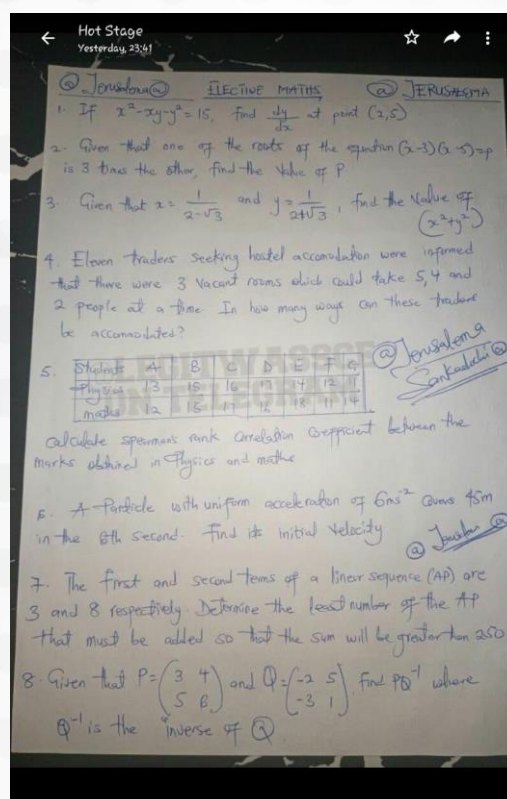 Hot Stage
Yesterday, 23:41
@ Jerusalema @ ELECTIVE MATHS @ JERUSALEMA
1. If x²-xy-y² = 15, find dy/dx at point (2,5)
2. Given that one of the roots of the equation (x-3)(x-5)=p
is 3 times the other, find the value of P
3. Given that x = 1/(2-√3) and y = 1/(2+√3), find the value of
(x²+y²)
4. Eleven traders seeking hostel accomodation were informed
that there were 3 vacant rooms which could take 5, 4 and
2 people at a time In how many ways can these traders
be accomodated?
@ Jerusalema
5. Students A B C D E F G
Physics 13 15 16 14 12 11
maths 12 15 17 18 11 14
IN TELEGRAM
Calculate spearman's rank correlation coefficient between the
marks obtained in Physics and maths
6. A Particle with uniform acceleration of 6ms⁻² covers 45m
in the 6th second. Find its initial velocity
@
7. The first and second terms of a linear sequence (AP) are
3 and 8 respectively. Determine the least number of the AP
that must be added so that the sum will be greater than 250
8. Given that P = (3 4 5 6) and Q = (-2 5 -3 1), find PQ⁻¹ where
Q⁻¹ is the inverse of Q